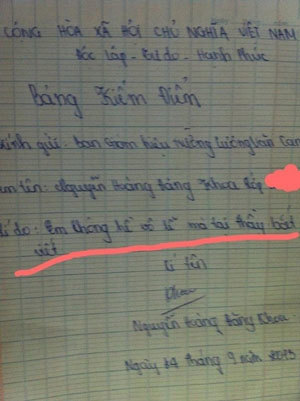 CỘNG HÒA XÃ HỘI CHỦ NGHĨA VIỆT NAM
Độc lập - Tự do - Hạnh Phúc
Bảng Kiểm Điểm
kính gửi: Ban Giám hiệu trường Lương Văn Can
em tên: Nguyễn Hoàng Đăng Khoa lớp
Lí do: Em không hề vô lễ mà tại thầy bắt
viết
kí tên
Khoa
Nguyễn Hoàng Đăng Khoa
Ngày 14 tháng 9 năm 2013